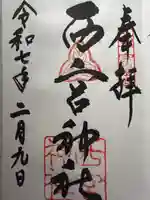 奉拝
西宮神社
令和七年二月九日